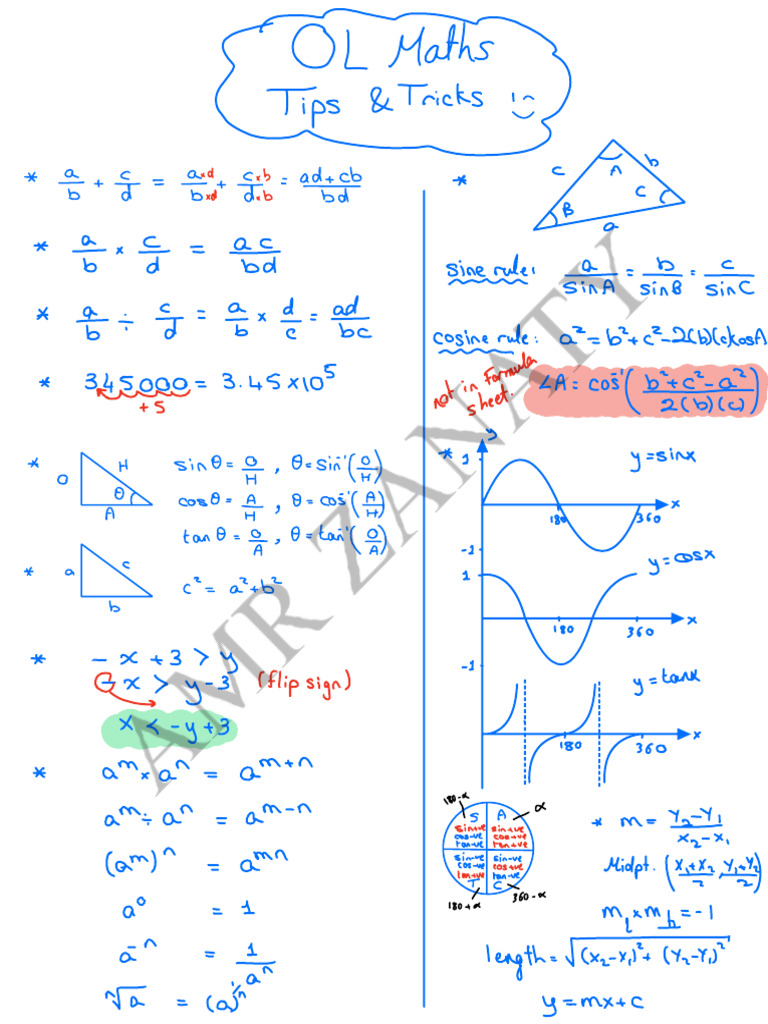 OL Maths
Tips & Tricks :)
* a/b + c/d = a×d/b×d + c×b/d×b = ad+cb/bd
* a/b × c/d = ac/bd
* a/b ÷ c/d = a/b × d/c = ad/bc
* 345000 = 3.45×10⁵
+5
* O H θ A
sinθ = O/H , θ = sin⁻¹(O/H)
cosθ = A/H , θ = cos⁻¹(A/H)
tanθ = O/A , θ = tan⁻¹(O/A)
* a c b
c² = a² + b²
* -x + 3 > y
-x > y-3 (flip sign)
x < -y+3
* aᵐ × aⁿ = aᵐ⁺ⁿ
aᵐ ÷ aⁿ = aᵐ⁻ⁿ
(aᵐ)ⁿ = aᵐⁿ
a⁰ = 1
a⁻ⁿ = 1/aⁿ
ⁿ√a = (a)^(1/n)
* c A b
B C
a
sine rule: a/sinA = b/sinB = c/sinC
cosine rule: a² = b²+c²-2(b)(c)cosA
not in Formula sheet.
∠A = cos⁻¹(b²+c²-a²/2(b)(c))
* y
1 y=sinx
180 360 x
-1
1 y=cosx
180 360 x
-1
y=tanx
180 360 x
180-α α
S A
sin+ve sin+ve
cos-ve cos+ve
tan-ve tan+ve
sin-ve sin-ve
cos-ve cos+ve
tan+ve tan-ve
T C
180+α 360-α
* m = Y₂-Y₁/x₂-x₁
Midpt. (x₁+x₂/2, Y₁+Y₂/2)
m_l × m_⊥ = -1
length = √(x₂-x₁)² + (Y₂-Y₁)²
y = mx + c
AMR ZANATY